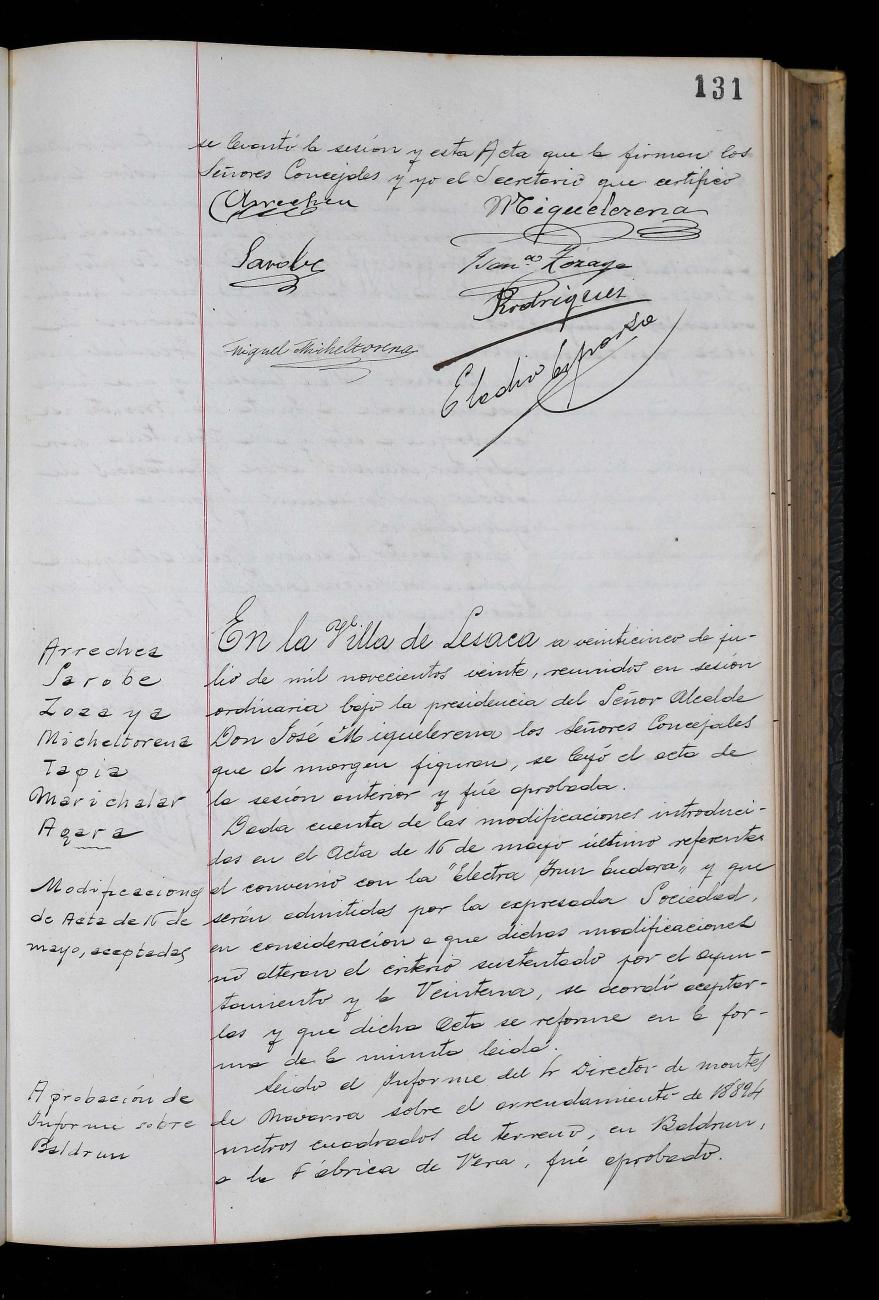 131
se levantó la sesión y esta Acta que la firman los
Señores Concejales y yo el Secretario que certifico
Arrechea
Miguelerena
Sarobe
Fran.co Zozaya
Rodriguez
Miguel Micheltorena
Eladio Esparza
Arrechea
Sarobe
Zozaya
Micheltorena
Tapia
Marichalar
Agara
En la Villa de Lesaca a veinticinco de ju-
lio de mil novecientos veinte, reunidos en sesión
ordinaria bajo la presidencia del Señor Alcalde
Don José Miguelerena los Señores Concejales
que al margen figuran, se leyó el acta de
la sesión anterior y fué aprobada.
Modificaciones
de Acta de 16 de
mayo, aceptadas
Dada cuenta de las modificaciones introduci-
das en el Acta de 16 de mayo último referente
al convenio con la "Electra Irun Endara" y que
serán admitidas por la expresada Sociedad,
en consideración a que dichas modificaciones
no alteran el criterio sustentado por el ayun-
tamiento y la Veintena, se acordó aceptar-
las y que dicha Acta se reforme en la for-
ma de la minuta leida.
Aprobación de
Informe sobre
Baldrun
Leido el Informe del Sr Director de montes
de Navarra sobre el arrendamiento de 18894
metros cuadrados de terreno, en Baldrun,
a la Fábrica de Vera, fué aprobado.